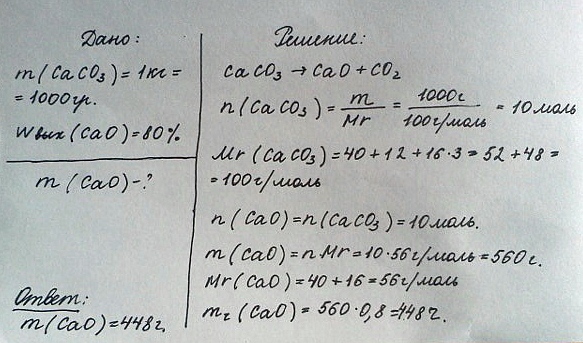 Дано:
m(CaCO₃)=1кг=
=1000гр.
Wвых(CaO)=80%
m(CaO)-?
Ответ:
m(CaO)=448г.
Решение:
CaCO₃→CaO+CO₂
n(CaCO₃)=m/Mr=1000г/100г/моль=10моль
Mr(CaCO₃)=40+12+16·3=52+48=
=100г/моль
n(CaO)=n(CaCO₃)=10моль.
m(CaO)=nMr=10·56г/моль=560г.
Mr(CaO)=40+16=56г/моль
m₂(CaO)=560·0,8=448г.